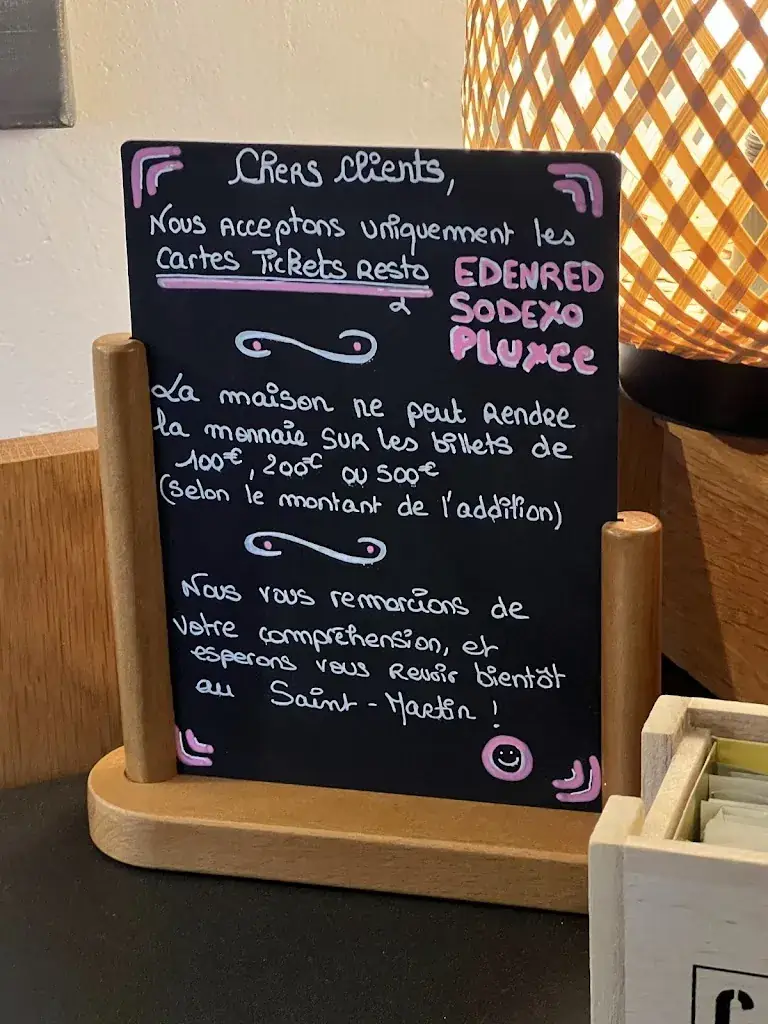 Chers clients,
Nous acceptons uniquement les
cartes Tickets Resto
EDENRED
SODEXO
PLUXEE
La maison ne peut rendre
la monnaie sur les billets de
100€, 200€ ou 500€
(selon le montant de l'addition)
Nous vous remercions de
votre compréhension, et
esperons vous revoir bientôt
au Saint-Martin !